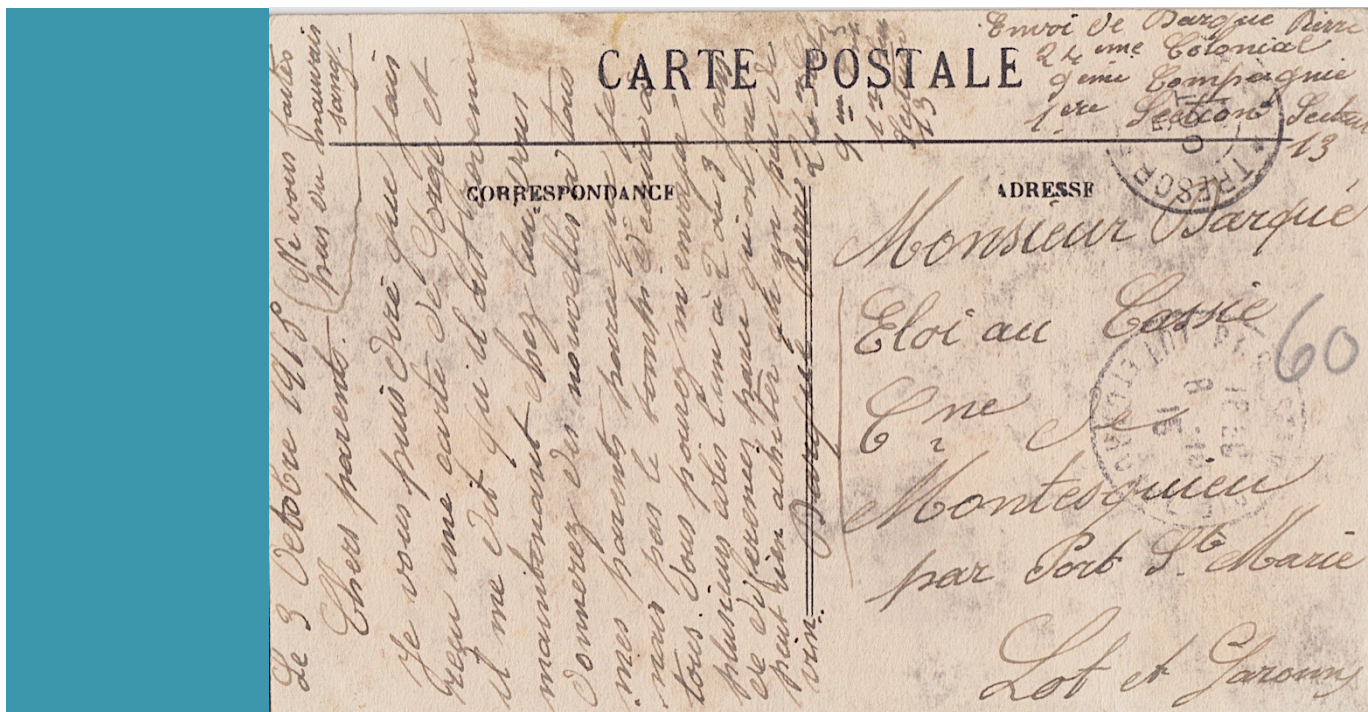 CARTE POSTALE
Envoi de Barque Pierre
24 eme Colonial
9eme Compagnie
1ere Section Secteur
13
CORRESPONDANCE
ADRESSE
Le 3 Octobre 1915 (Ne vous faites
pas du mauvais
sang.
Chers parents.
Je vous puis dire que j'ai
reçu une carte de et
il me dit qu'il doit revenir
maintenant chez lui vous
donnerez des nouvelles a tous
mes parents parce que je
n'ais pas le temps d'ecrire a
tous. Vous pourez m'envoyer
plusieurs colis l'un à 2 ou 3 jours
de diference parce qu'ont ne
peut rien acheter qu'un peu de
vin. Barqué Pierre 24 me
9 me
1re
Secteur
13
TRESOR
Monsieur Barqué
Eloi au Cassie
Cne de
Montesquieu
par Port Ste Marie
Lot et Garonne
60